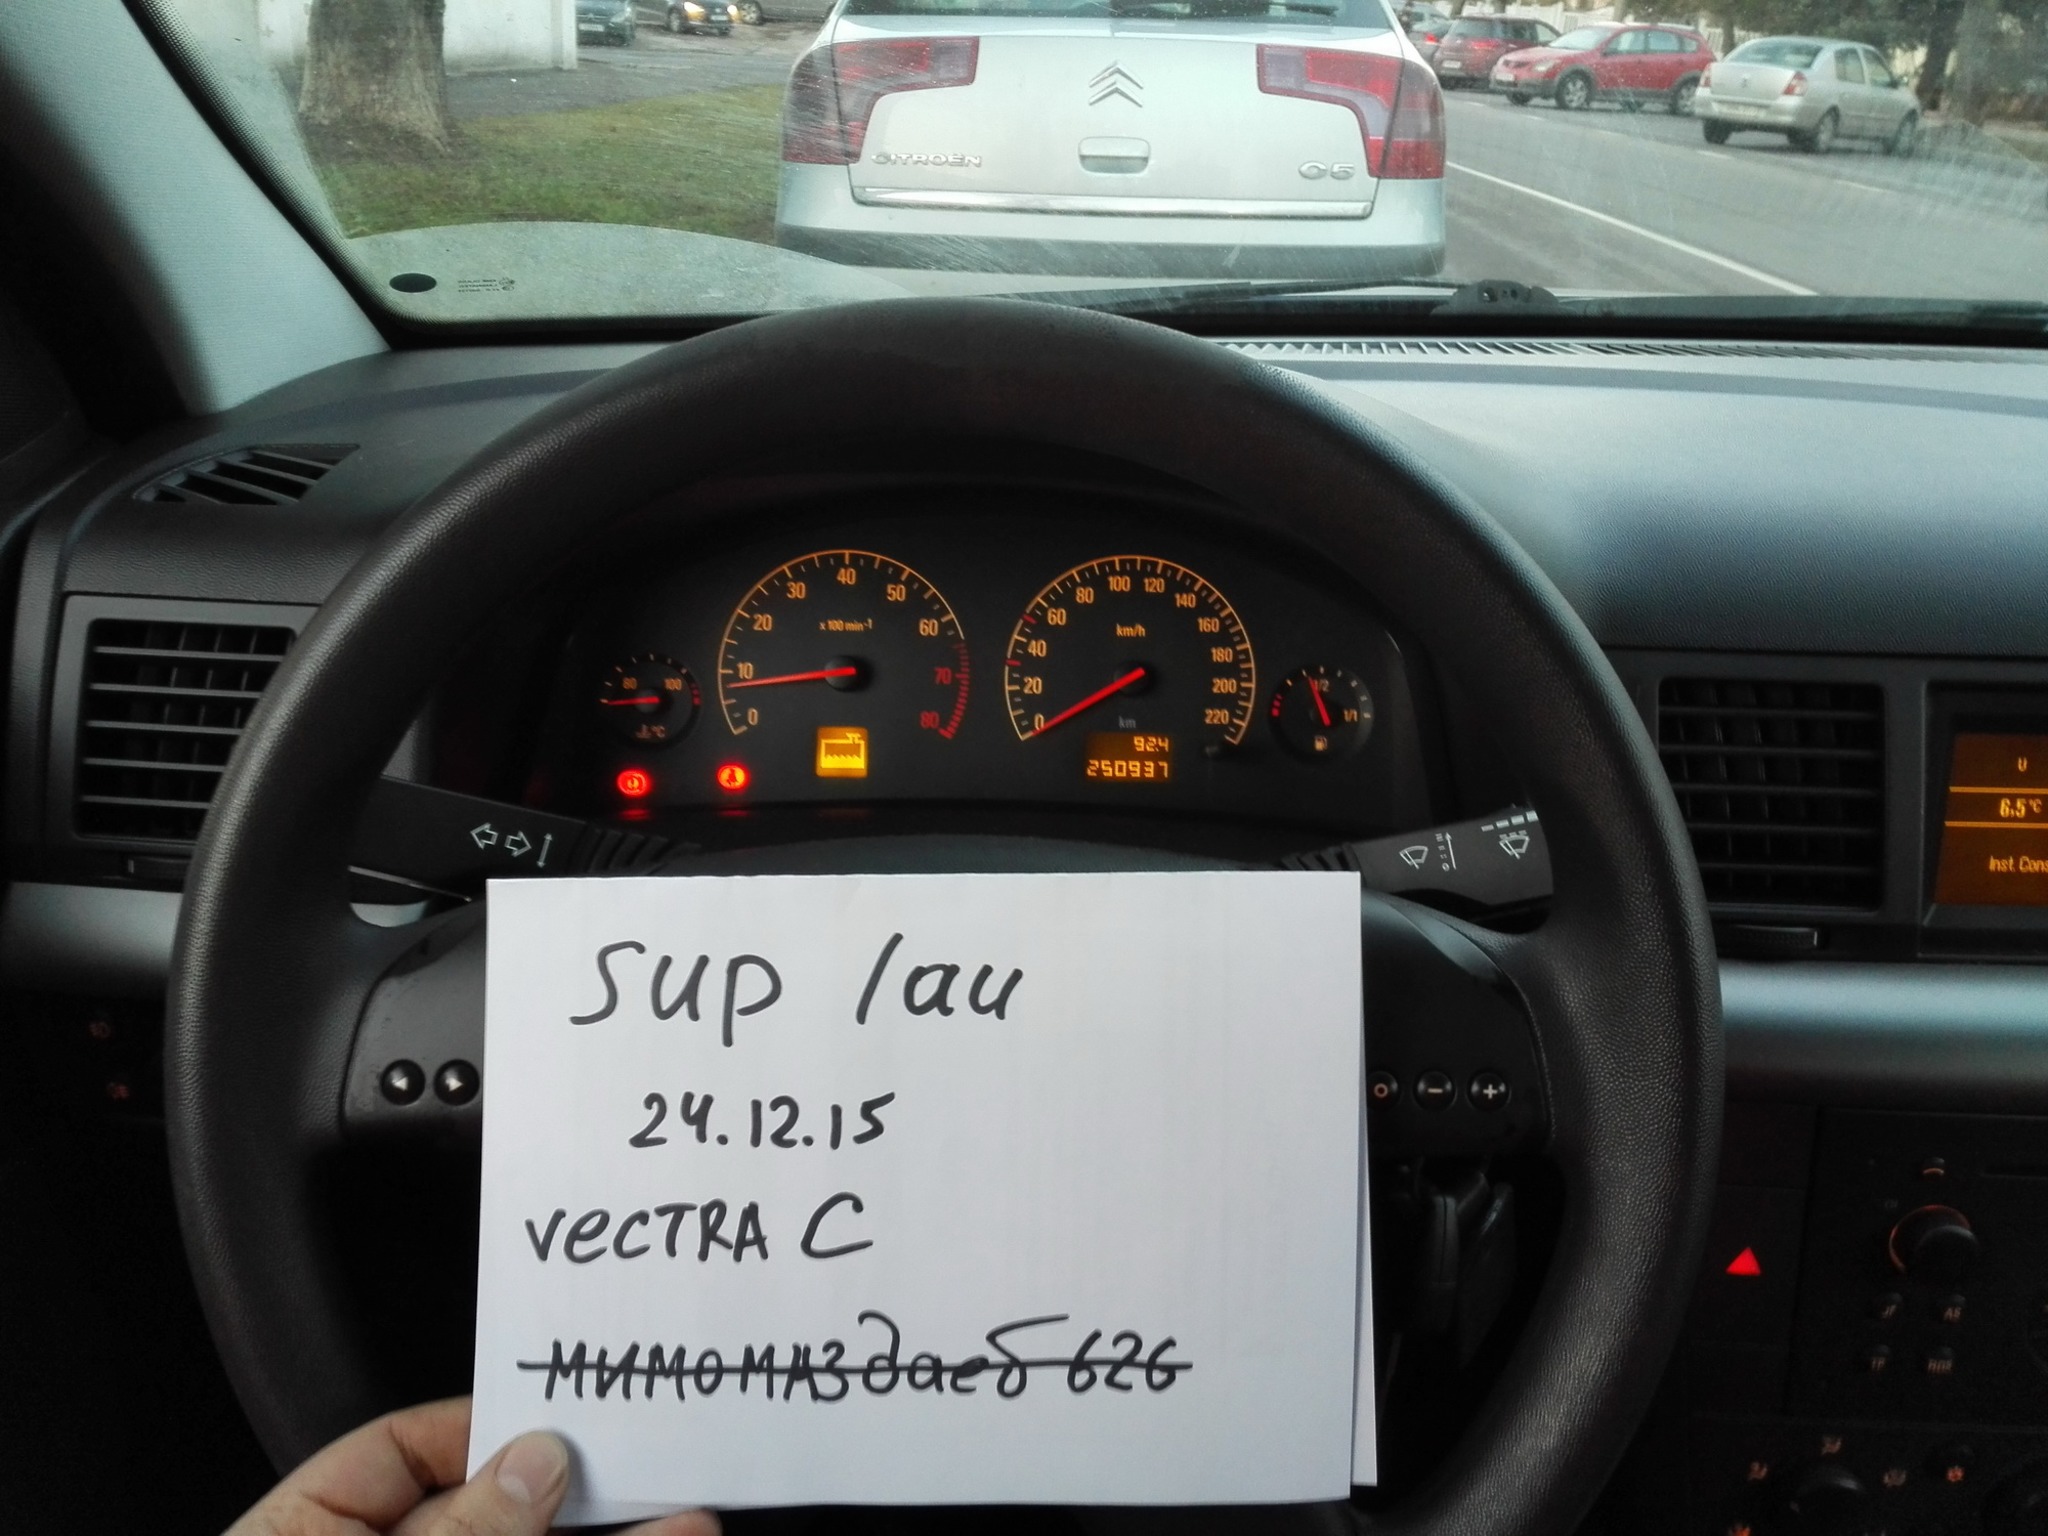 CITROËN C5
10 20 30 40 50 60 70 80 0
x100 min-1
80 100
°C
0 20 40 60 80 100 120 140 160 180 200 220
km/h
km
92.4
250937
1/2
1/1
6.5°C
Inst. Cons
sup /au
24.12.15
VECTRA C
МИМОМАЗдаеб 626